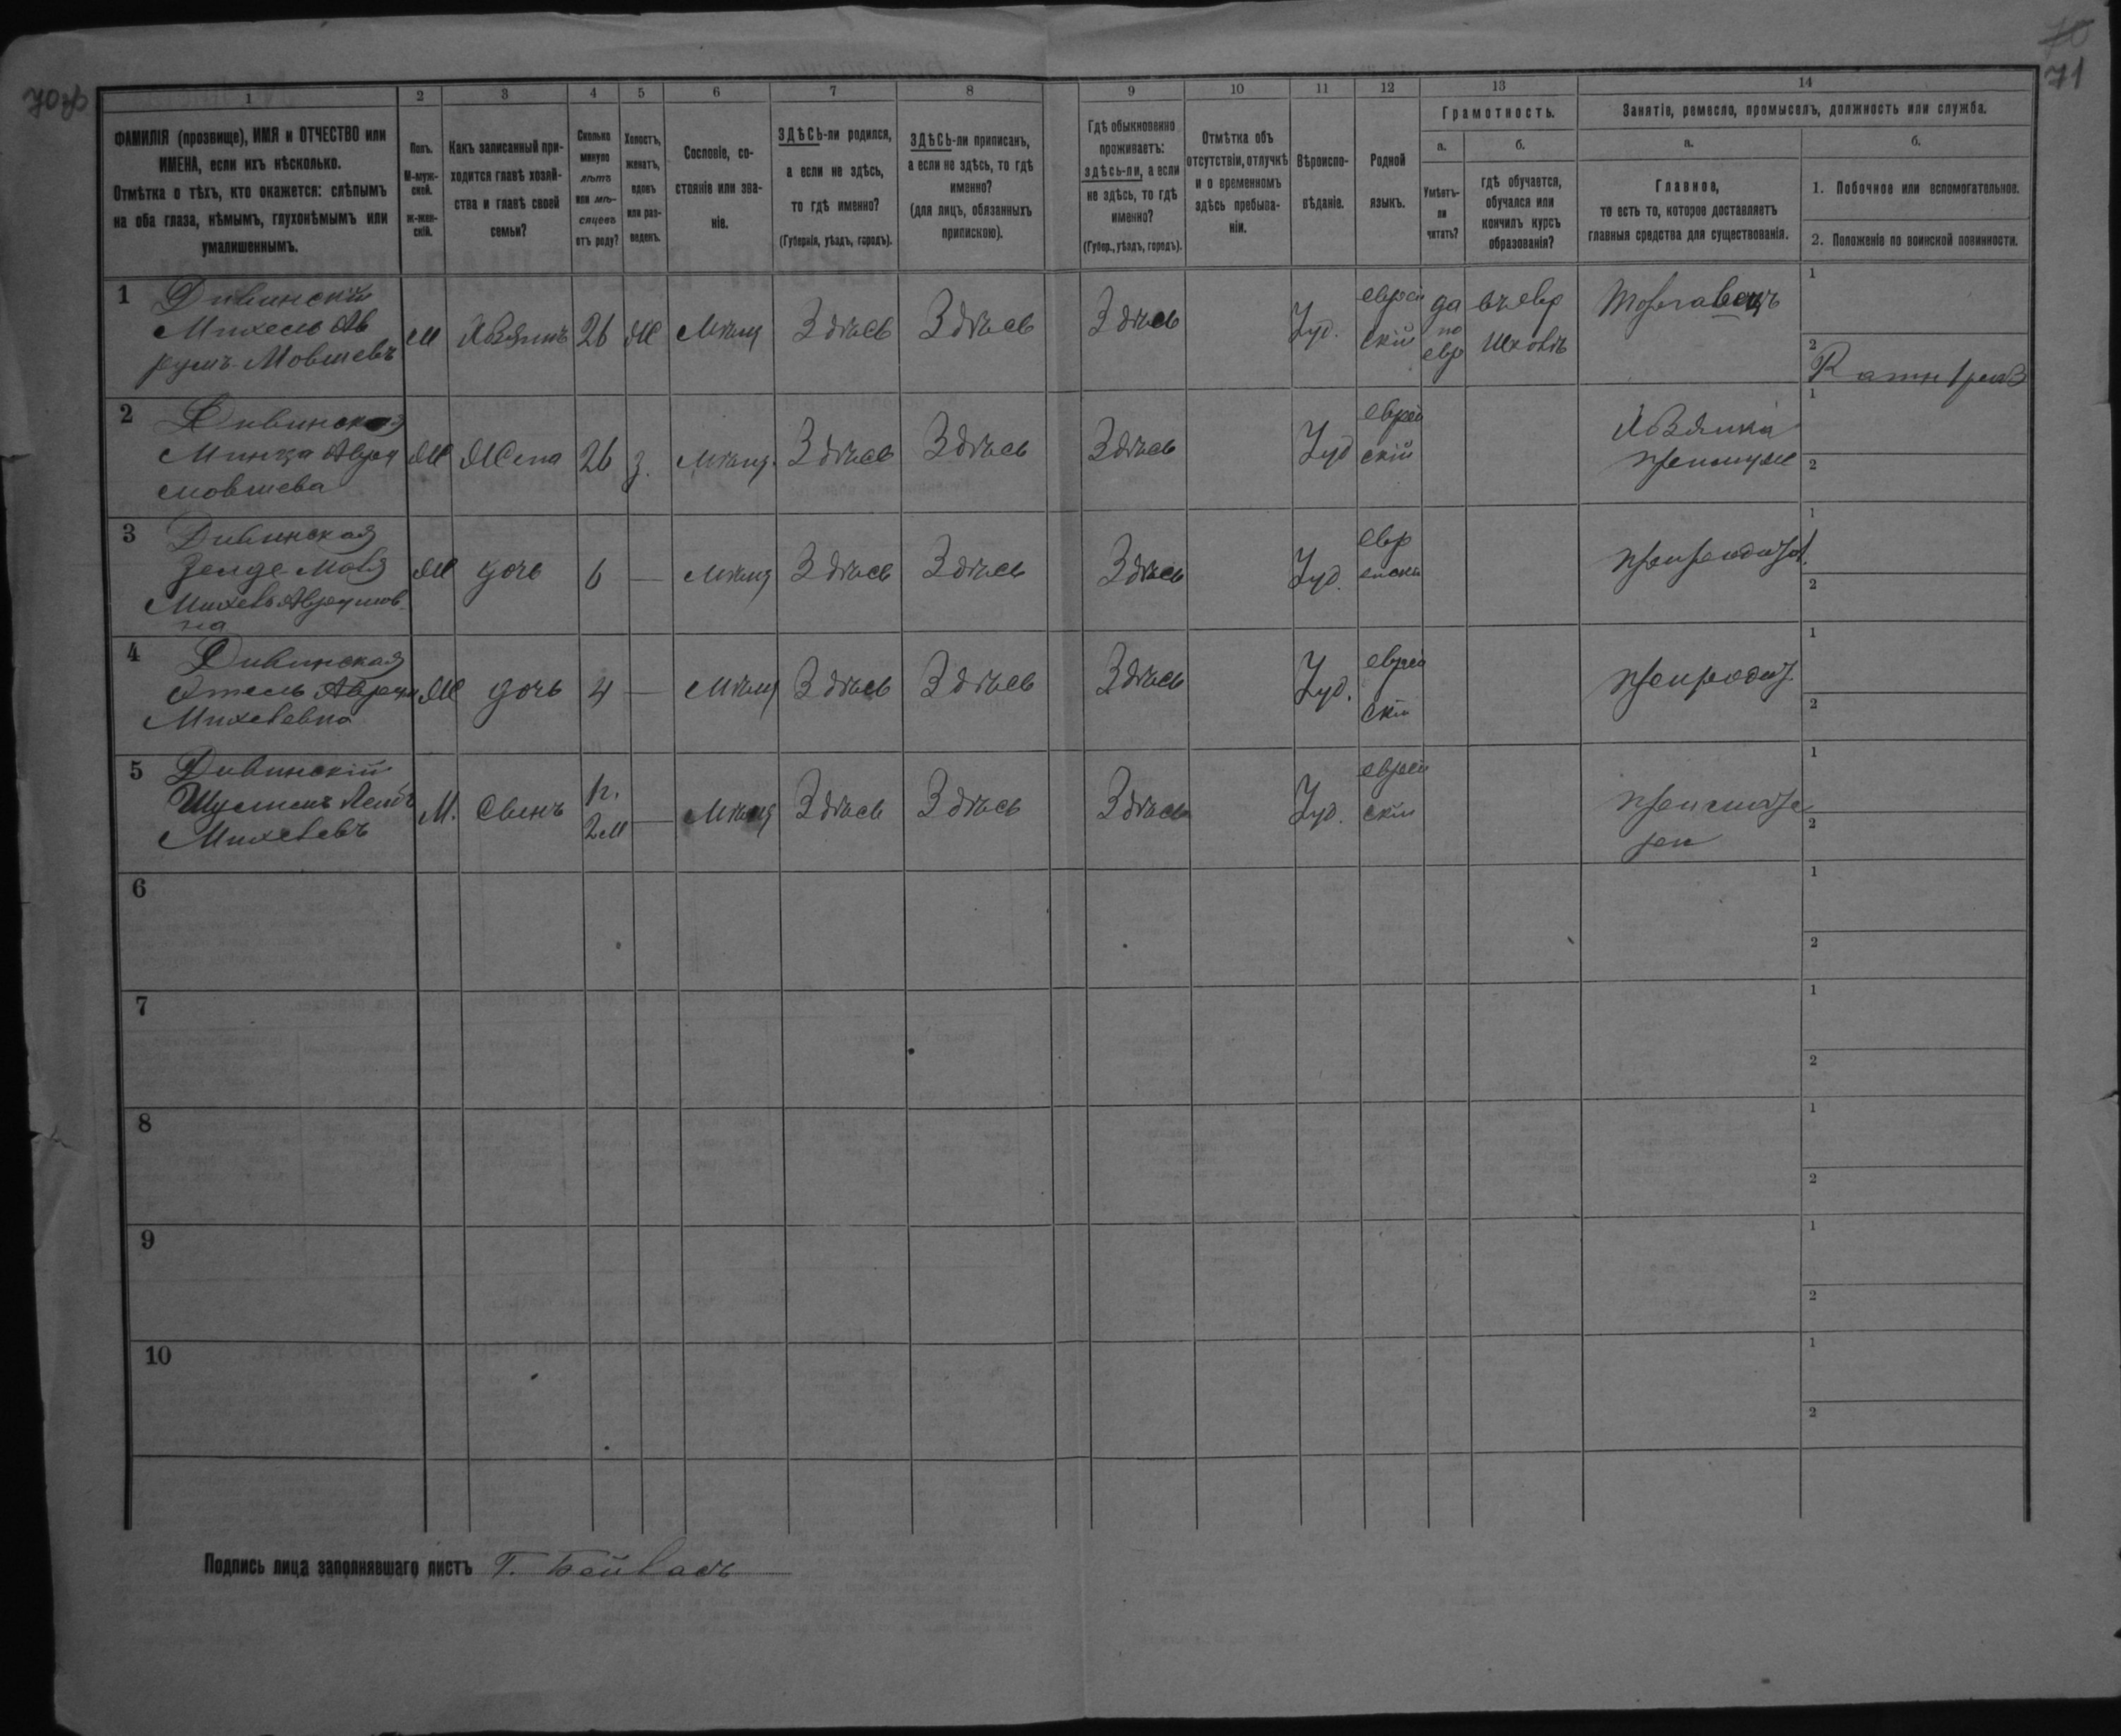 70об
70
71
1
2
3
4
5
6
7
8
9
10
11
12
13
14
ФАМИЛІЯ (прозвище), ИМЯ и ОТЧЕСТВО или
ИМЕНА, если ихъ нѣсколько.
Отмѣтка о тѣхъ, кто окажется: слѣпымъ
на оба глаза, нѣмымъ, глухонѣмымъ или
умалишеннымъ.
Полъ.
М-муж-
ской.
ж-жен-
скій.
Какъ записанный при-
ходится главѣ хозяй-
ства и главѣ своей
семьи?
Сколько
минуло
лѣтъ
или мѣ-
сяцевъ
отъ роду?
Холостъ,
женатъ,
вдовъ
или раз-
веденъ.
Сословіе, со-
стояніе или зва-
ніе.
ЗДѢСЬ-ли родился,
а если не здѣсь,
то гдѣ именно?
(Губернія, уѣздъ, городъ).
ЗДѢСЬ-ли приписанъ,
а если не здѣсь, то гдѣ
именно?
(для лицъ, обязанныхъ
припискою).
Гдѣ обыкновенно
проживаетъ:
здѣсь-ли, а если
не здѣсь, то гдѣ
именно?
(Губер., уѣздъ, городъ).
Отмѣтка объ
отсутствіи, отлучкѣ
и о временномъ
здѣсь пребыва-
ніи.
Вѣроиспо-
вѣданіе.
Родной
языкъ.
Грамотность.
а.
Умѣетъ-
ли
читать?
б.
гдѣ обучается,
обучался или
кончилъ курсъ
образованія?
Занятіе, ремесло, промыселъ, должность или служба.
а.
Главное,
то есть то, которое доставляетъ
главныя средства для существованія.
б.
1. Побочное или вспомогательное.
2. Положеніе по воинской повинности.
1
Дивинскій
Михель Ав
румъ Мовшевъ
м
хозяинъ
26
ж
мѣщ
Здѣсь
Здѣсь
Здѣсь
Іуд.
еврей
скій
да
по
евр
въ евр
школѣ
торговецъ
1
2
2
Дивинская
Авру
мовшева
ж
жена
26
з.
мѣщ.
Здѣсь
Здѣсь
Здѣсь
Іуд
еврей
скій
хозяйка
при мужѣ
1
2
3
Дивинская
на
ж
дочь
6
—
мѣщ
Здѣсь
Здѣсь
Здѣсь
Іуд.
евр
ейски
при родит.
1
2
4
Дивинская
Михелевна
ж
дочь
4
—
мѣщ
Здѣсь
Здѣсь
Здѣсь
Іуд.
еврей
скій
при родит.
1
2
5
Дивинскій
Михелевъ
М.
Сынъ
2м
—
мѣщ
Здѣсь
Здѣсь
Здѣсь
Іуд.
еврей
скій
при матe
ри
1
2
6
1
2
7
1
2
8
1
2
9
1
2
10
1
2
Подпись лица заполнявшаго листъ